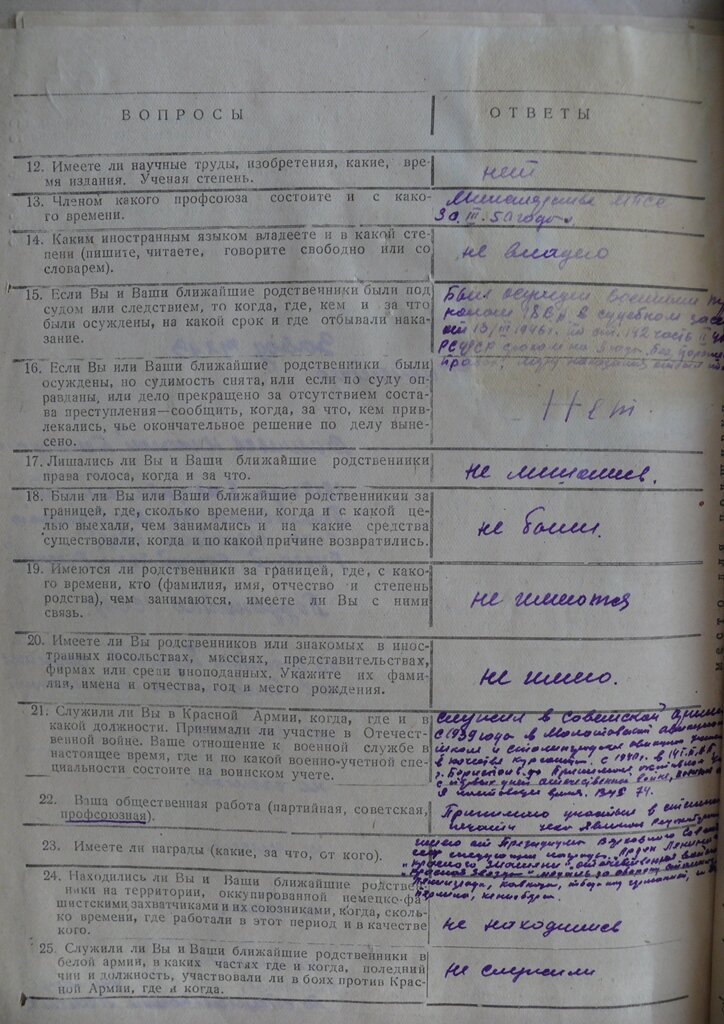 ВОПРОСЫ
ОТВЕТЫ
12. Имеете ли научные труды, изобретения, какие, вре-
мя издания. Ученая степень.
нет
13. Членом какого профсоюза состоите и с како-
го времени.
III. 50 года.
14. Каким иностранным языком владеете и в какой сте-
пени (пишите, читаете, говорите свободно или со
словарем).
не владею
15. Если Вы и Ваши ближайшие родственники были под
судом или следствием, то когда, где, кем и за что
были осуждены, на какой срок и где отбывали нака-
зание.
Был осужден военным
в судебном
от 13/III 1946г. по ст. 192 часть II
РСФСР сроком на
16. Если Вы или Ваши ближайшие родственники были
осуждены, но судимость снята, или если по суду оп-
равданы, или дело прекращено за отсутствием соста-
ва преступления—сообщить, когда, за что, кем прив-
лекались, чье окончательное решение по делу выне-
сено.
Нет.
17. Лишались ли Вы и Ваши ближайшие родственники
права голоса, когда и за что.
не лишались.
18. Были ли Вы или Ваши ближайшие родственникии за
границей, где, сколько времени, когда и с какой це-
лью выехали, чем занимались и на какие средства
существовали, когда и по какой причине возвратились.
не были.
19. Имеются ли родственники за границей, где, с како-
го времени, кто (фамилия, имя, отчество и степень
родства), чем занимаются, имеете ли Вы с ними
связь.
не имеются
20. Имеете ли Вы родственников или знакомых в инос-
транных посольствах, миссиях, представительствах,
фирмах или среди иноподанных. Укажите их фами-
лии, имена и отчества, год и место рождения.
не имею.
21. Служили ли Вы в Красной Армии, когда, где и в
какой должности. Принимали ли участие в Отечест-
венной войне. Ваше отношение к военной службе в
настоящее время, где и по какой военно-учетной спе-
циальности состоите на воинском учете.
служил в Советской Армии
с 1939 года в Молотовской авиацион
школ и Сталинградская авиация
в качестве курсанта. с 1940г. в
г. Борисполь до
с первых дней отечественной войны,
в настоящее время. ВУС 74.
22. Ваша общественная работа (партийная, советская,
профсоюзная).
Принимаю участие в
печати
23. Имеете ли награды (какие, за что, от кого).
имею от Президиума Верховного Совета
Ленина
"Красного Знамени" отечественная война
"Красная звезда"
24. Находились ли Вы и Ваши ближайшие родствен-
ники на территории, оккупированной немецко-фа-
шистскими захватчиками и их союзниками, когда, сколь-
ко времени, где работали в этот период и в качестве
кого.
не находились
25. Служили ли Вы и Ваши ближайшие родственники в
белой армии, в каких частях где и когда, поледний
чин и должность, участвовали ли в боях против Крас-
ной Армии, где и когда.
не служили